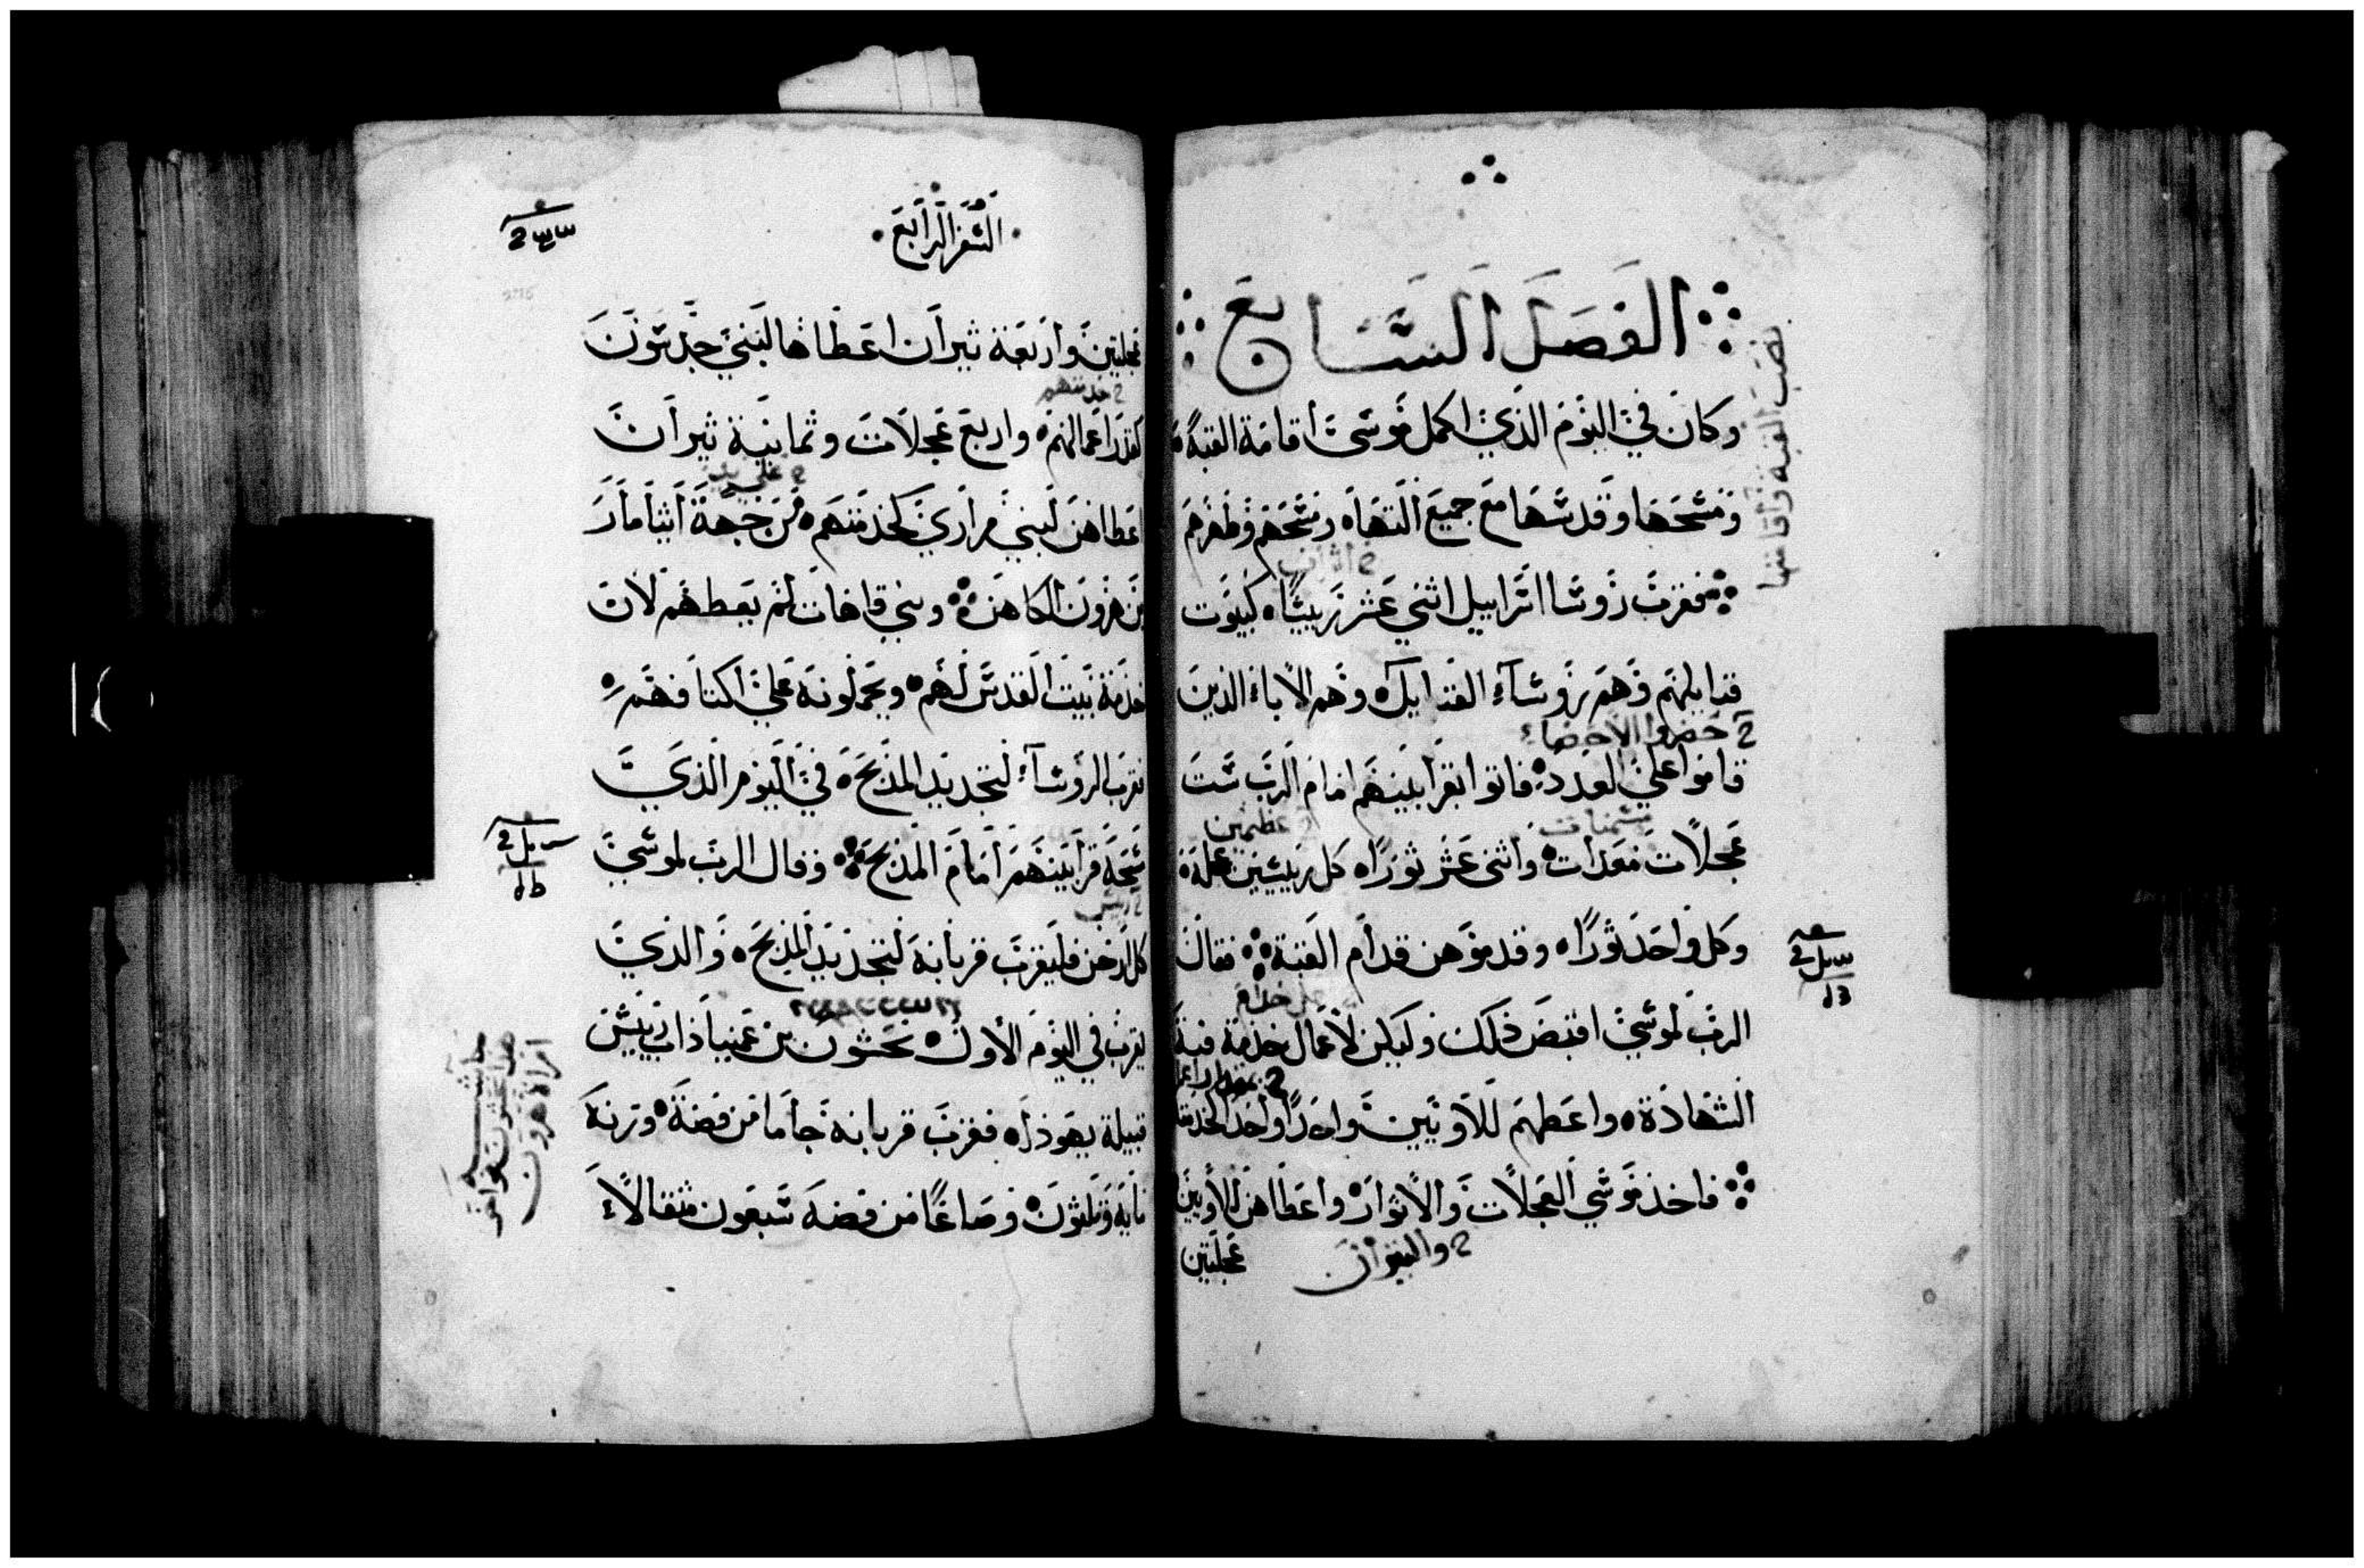 الفصل السابع
وكان في اليوم الذي اكمل موسى اقامة القبة
ومسحها وقدسها مع جميع التها ومسحهم وطهرهم
فقرب روسا اسراييل اثني عشر رييسا كبيوت
قبايلهم وهم روساء القبايل وهم الاباء الذين
2 حضروا الاحصاء
قاموا على العدد فاتوا بقرابينهم امام الرب ست
2 عظيمين
عجلات معدات واثنى عشر ثورا كل رييسين عجلة
وكل واحد ثورا وقدموهن قدام القبة فقال
الرب لموسى اقبض ذلك وليكن لاعمال خدمة قبة
الشهادة واعطهم للاويين واحدا واحد لخدمة
فاخذ موسي العجلات والاثوار واعطاهن للاويين
2 والثيران
عجلتين
السفر الرابع
عجلتين واربعة ثيران اعطاها لبني جدسون
2 خدمتهم
كقدر اعمالهم واربع عجلات وثمانية ثيران
2 على يد
اعطاهن لبني مراري كخدمتهم من جهة اثيامار
بن هرون الكاهن وبني قاهات لم يعطهم لان
خدمة بيت القدس لهم ويحملونه علي اكتافهم
فقرب الروساء لتجديد المذبح في اليوم الذي
مسحه قرابينهم امام المذبح وقال الرب لموسي
2 رييس
كل ارخن فليقرب قربانه لتجديد المذبح والذي
يقرب في اليوم الاول نحسون بن عمينا ذاب رييس
قبيلة يهوذا فقرب قربانه جاما من فضة وزنه
مايه وثلثون وصاعا من فضة سبعون مثقالا